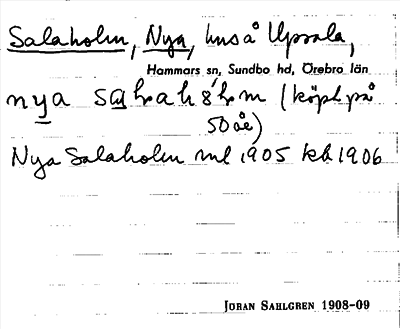 Salaholm, Nya, hus å Upsala,
Hammars sn, Sundbo hd, Örebro län
nya (köpt på
50 år)
Nya Salaholm ml 1905 kb 1906
JORAN SAHLGREN 1908-09